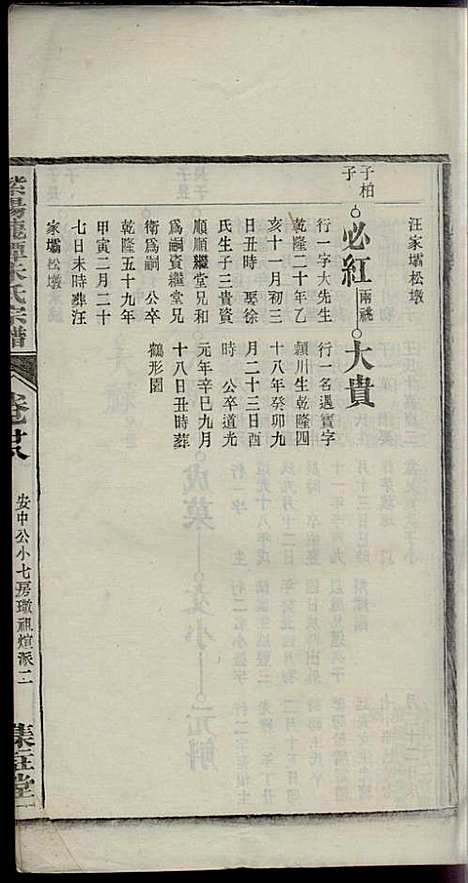 汪家壩松墩
子柏
子
必紅
兩祧
大貴
行一字大先生
乾隆二十年乙
亥十一月初三
日丑時 娶徐
氏生子三貴資
順順繼堂兄和
爲嗣資繼堂兄
衛爲嗣 公卒
乾隆五十九年
甲寅二月二十
七日未時葬汪
家壩松墩
行一名遇實字
頴川生乾隆四
十八年癸卯九
月二十三日酉
時 公卒道光
元年辛巳九月
十八日丑時葬
鶴形園
紫陽龍潭朱氏宗譜
安中公小七房璥祖煊派二